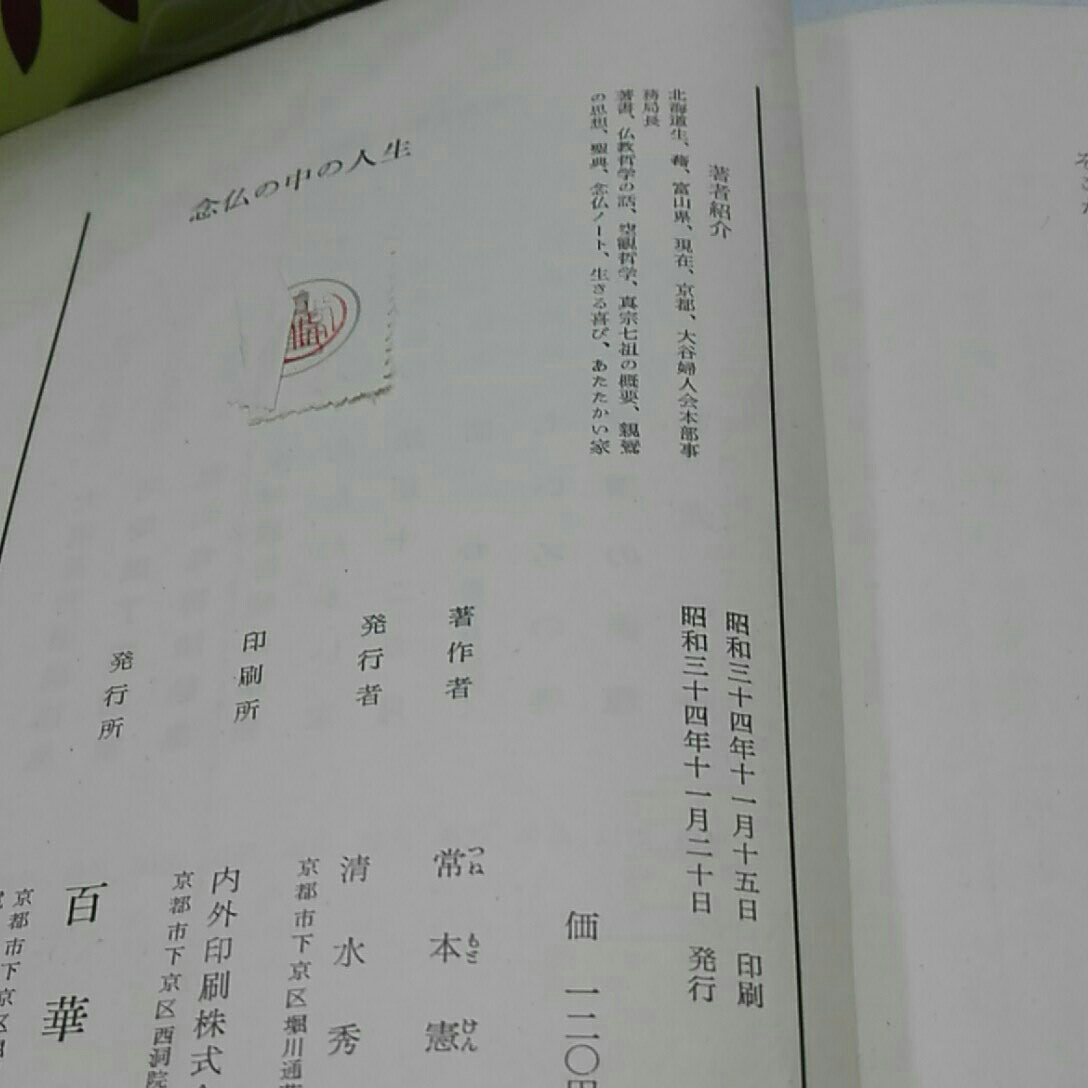 著者紹介
北海道生、籍、富山県、現在、京都、大谷婦人会本部事
務局長
著書、仏教哲学の話、空観哲学、真宗七祖の概要、親鸞
の思想、聖典、念仏ノート、生きる喜び、あたたかい家
念仏の中の人生
昭和三十四年十一月十五日 印刷
昭和三十四年十一月二十日 発行
価 一二〇円
著作者 常本憲
つね もと けん
発行者 清水秀
京都市下京区堀川通
印刷所 内外印刷株式
京都市下京区西洞院
発行所 百華
京都市下京区